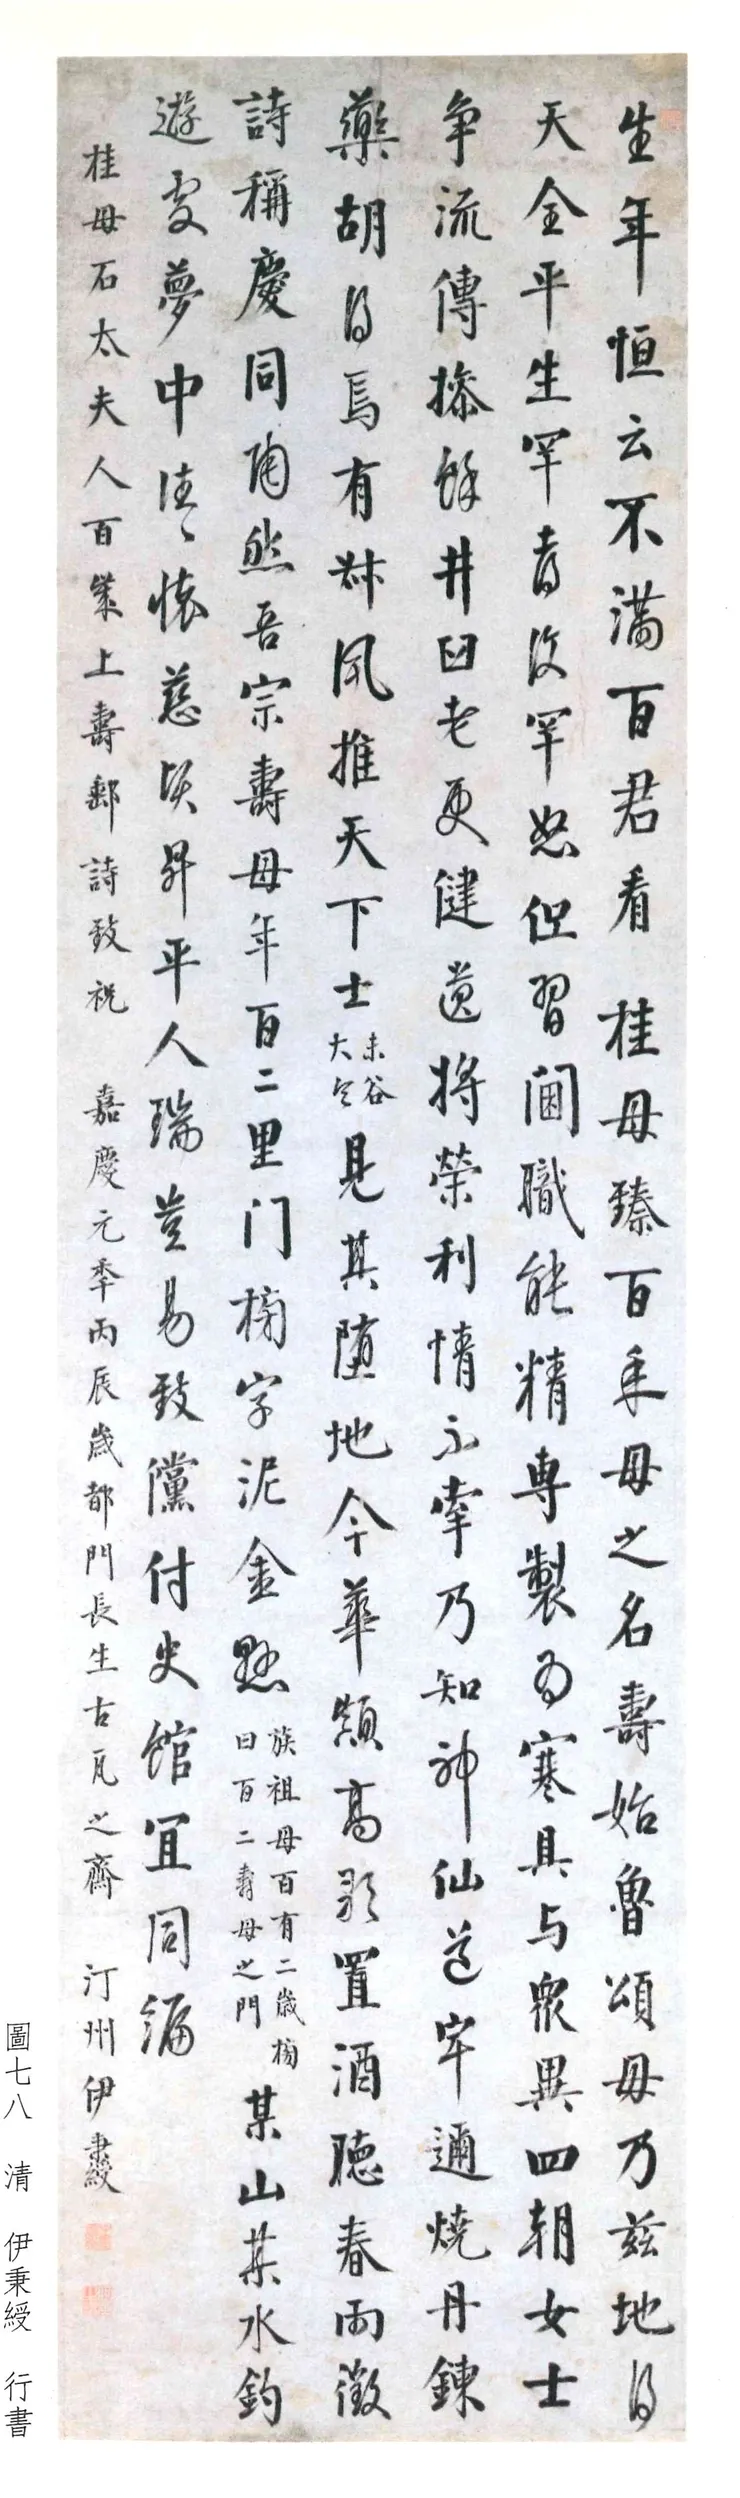 生年恒云不滿百君看 桂母臻百年母之名壽始魯頌母乃茲地得
天全平生罕眚復罕怒但習閫職能精專製為寒具与衆異四朝女士
争流傳操餘井臼老更健遑將榮利情不牽乃知神仙道牢邇燒丹鍊
藥胡得焉有林風推天下士
未谷
大令
見其墮地今華顛高歌置酒聽春雨徵
詩稱慶同陶然吾宗壽母年百二里门榜字泥金懸
族祖母百有二歲榜
曰百二壽母之門
某山某水釣
遊處夢中往〻懷慈顏昇平人瑞豈易致儻付史館宜同編
桂母石太夫人百歲上壽郵詩致祝 嘉慶元季丙辰歲都門長生古瓦之齋 汀州伊秉綬
圖七八 清 伊秉綬 行書